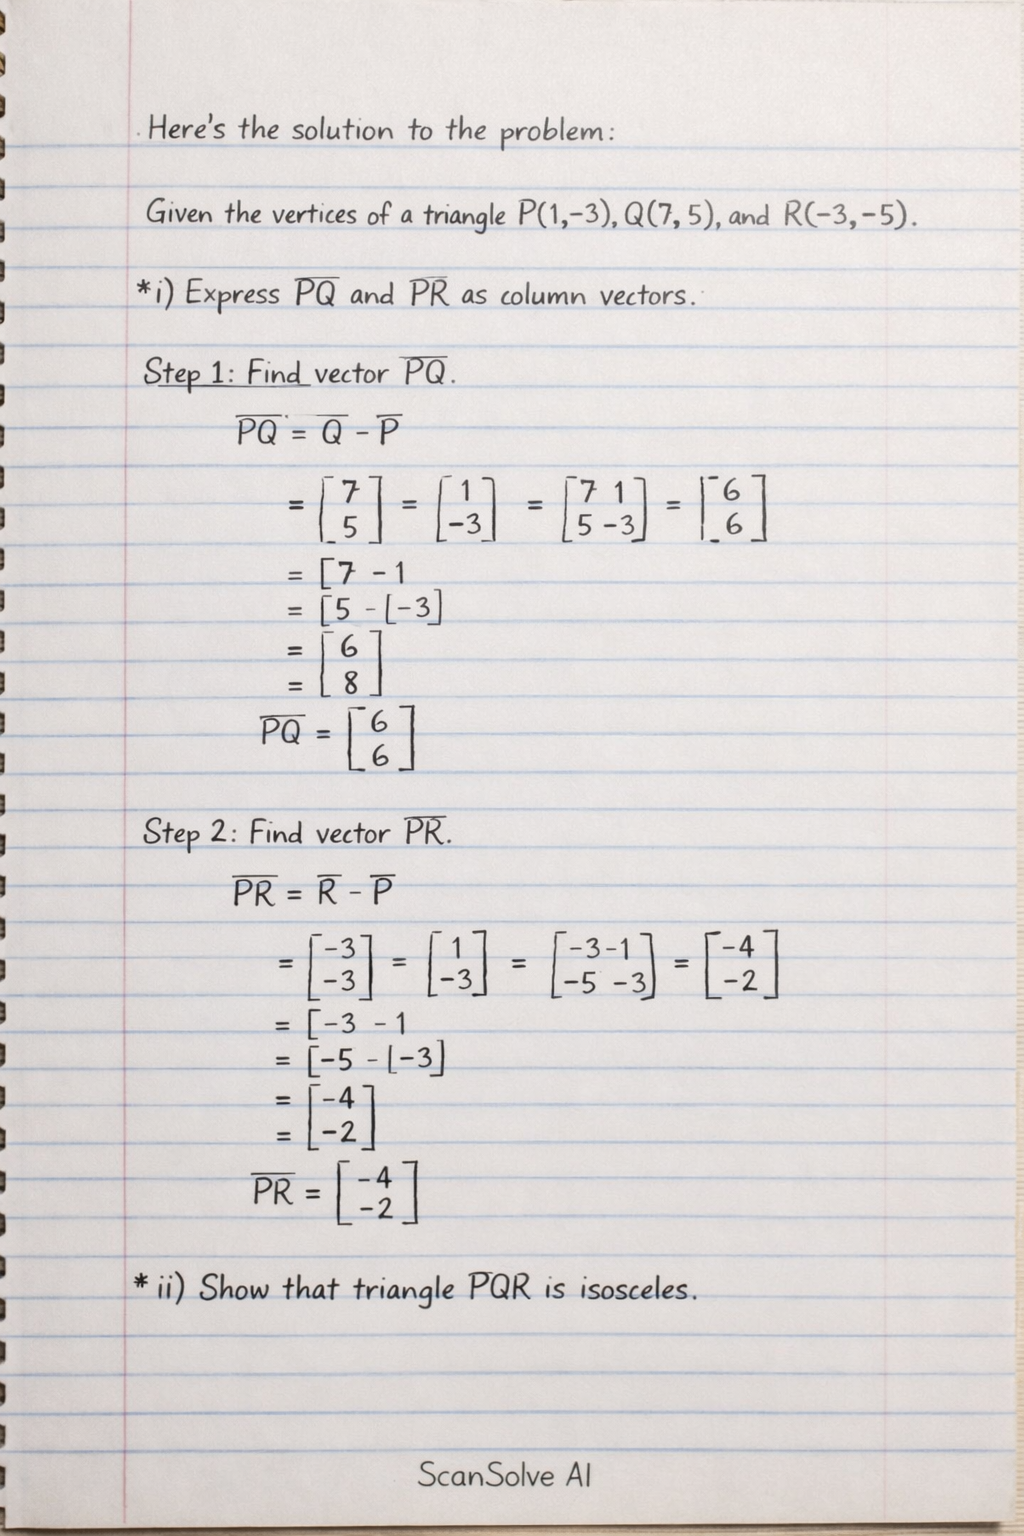 Here's the solution to the problem:
Given the vertices of a triangle P(1,-3), Q(7, 5), and R(-3,-5).
*i) Express PQ and PR as column vectors.
Step 1: Find vector PQ.
PQ = Q - P
= [7 5] = [1 -3] = [7 1 5 -3] = [6 6]
= [7 - 1
= [5 - [-3]
= [6
= 8]
PQ = [6 6]
Step 2: Find vector PR.
PR = R - P
= [-3 -3] = [1 -3] = [-3-1 -5 -3] = [-4 -2]
= [-3 - 1
= [-5 - [-3]
= [-4
= -2]
PR = [-4 -2]
* ii) Show that triangle PQR is isosceles.
ScanSolve AI